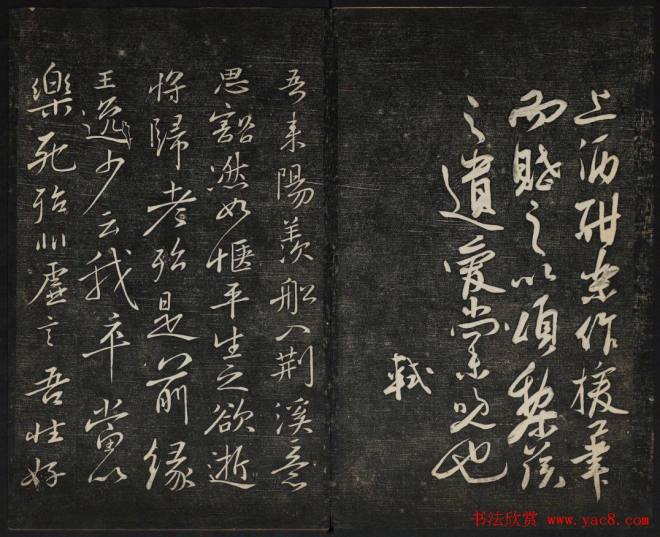 上酒酣樂作援筆
而賦之以頌黎侯
之遺愛尚未晚也
軾
吾來陽羨船入荊溪意
思豁然如愜平生之欲逝
將歸老殆是前緣
王逸少云我卒當以
樂死殆非虛言吾性好
书法欣赏 www.yac8.com